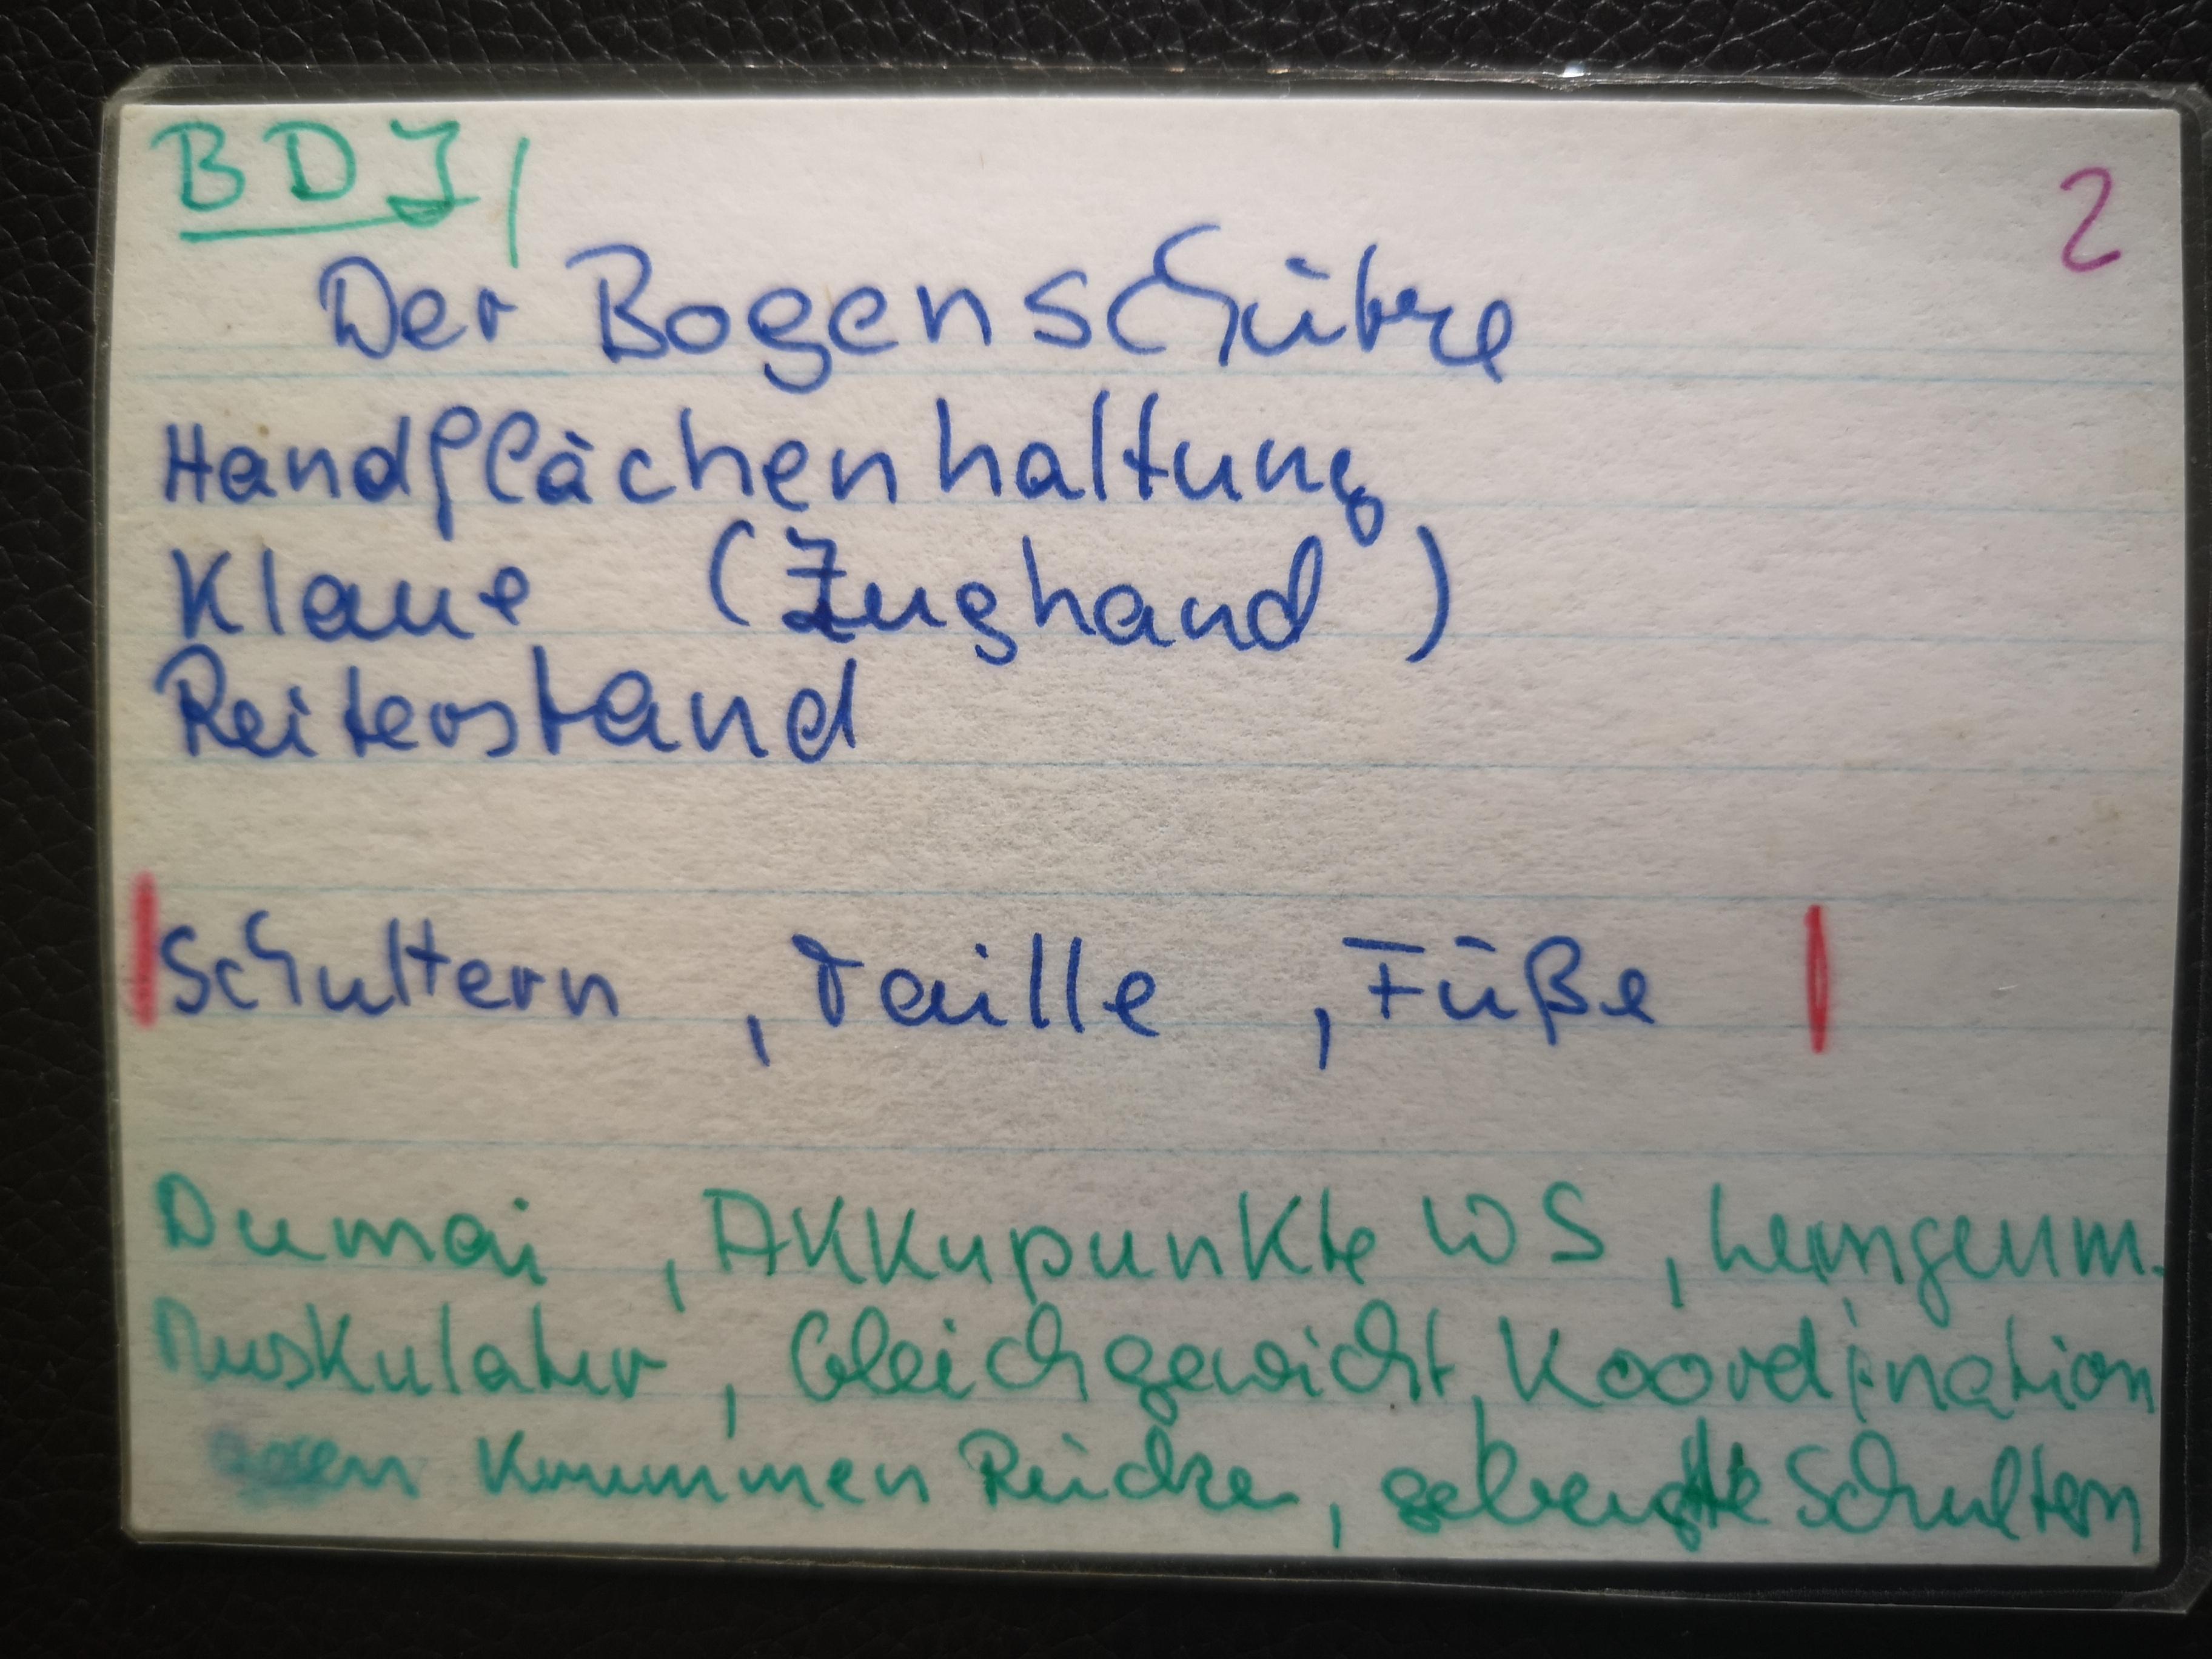 BDJ
2
Der Bogenschütze
Handflächenhaltung
Klaue (Zughand)
Reiterstand
Schultern , Taille , Füße
Dumai , Akkupunkte WS ,
Muskulatur , Gleichgewicht, Koordination
krummen Rücken , gebeugte Schultern